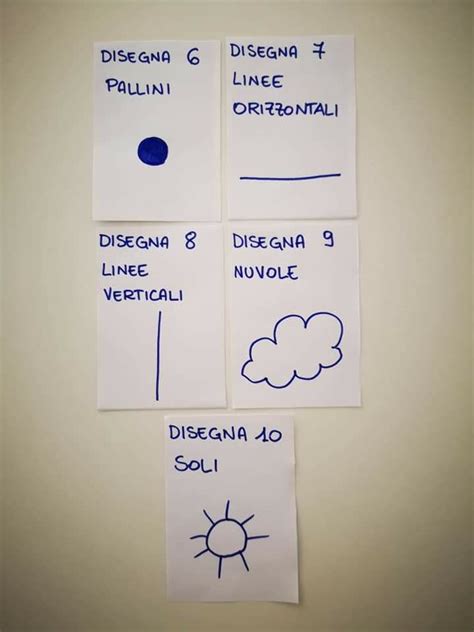 DISEGNA 6
PALLINI
DISEGNA 7
LINEE
ORIZZONTALI
DISEGNA 8
LINEE
VERTICALI
DISEGNA 9
NUVOLE
DISEGNA 10
SOLI